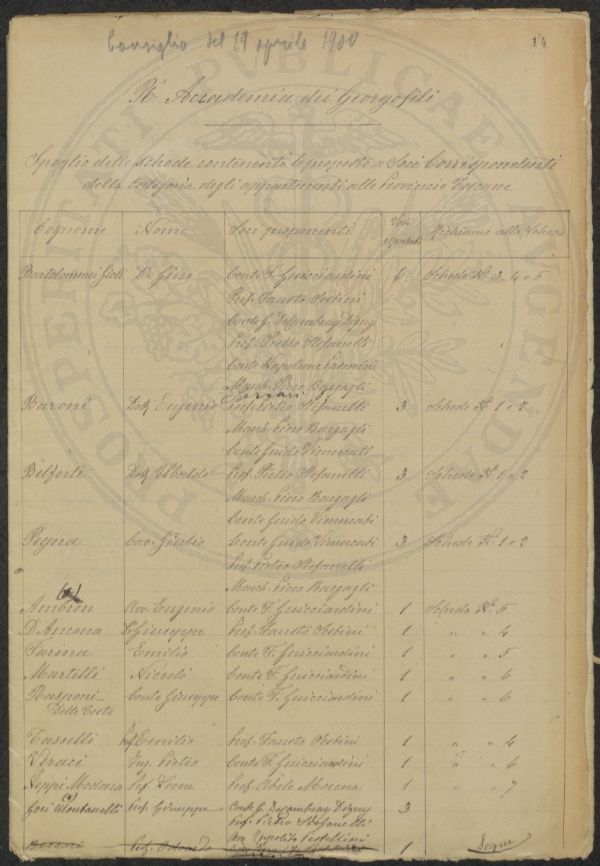 Consiglio del 19 aprile 1900
14
PROSPERITATI PUBLICAE AUGENDAE
R.ª Accademia dei Georgofili
Spoglio delle schede contenenti le proposte a Soci Corrispondenti
della Categoria degli appartenenti alle Provincie Toscane
Cognome Nome Soci proponenti Voti riportati Richiamo alle Schede
Bartolommei Gioli Dr. Gino Conte F. Guicciardini 6 Schede N. 3. 4 e 5
Prof. Fausto Sestini
Conte G. De Cambray Digny
Prof. Pietro Stefanelli
Conte Napoleone Passerini
March. Piero Bargagli
Baroni Dott. Eugenio Prof. Pietro Stefanelli 3 Schede N. 1 e 2
March. Piero Bargagli
Conte Guido Vimercati
Belforti Dott. Ubaldo Prof. Pietro Stefanelli 3 Schede N. 1 e 2
March. Piero Bargagli
Conte Guido Vimercati
Pegna Cav. Giulio Conte Guido Vimercati 3 Schede N. 1 e 2
Prof. Pietro Stefanelli
March. Piero Bargagli
Ambron Avv. Eugenio Conte F. Guicciardini 1 Scheda N. 5
D'Ancona Dr. Giuseppe Prof. Fausto Sestini 1 " " 4
Farina Emilio Conte F. Guicciardini 1 " " 5
Martelli Niccolò Conte F. Guicciardini 1 " " 6
Rasponi Conte Giuseppe Conte F. Guicciardini 1 " " 6
Della Testa
Tasselli Prof. Emilio Prof. Fausto Sestini 1 " " 4
Veraci Ing. Pietro Conte F. Guicciardini 1 " " 6
Neppi Modona Prof. Leone Prof. Abele Morena 1 " " 7
Gori Montanelli Prof. Giuseppe Conte G. De Cambray Digny 3
Prof. Pietro Stefanelli
Avv. Ippolito Pestellini
Beccari Prof. Odoardo 1 Segue